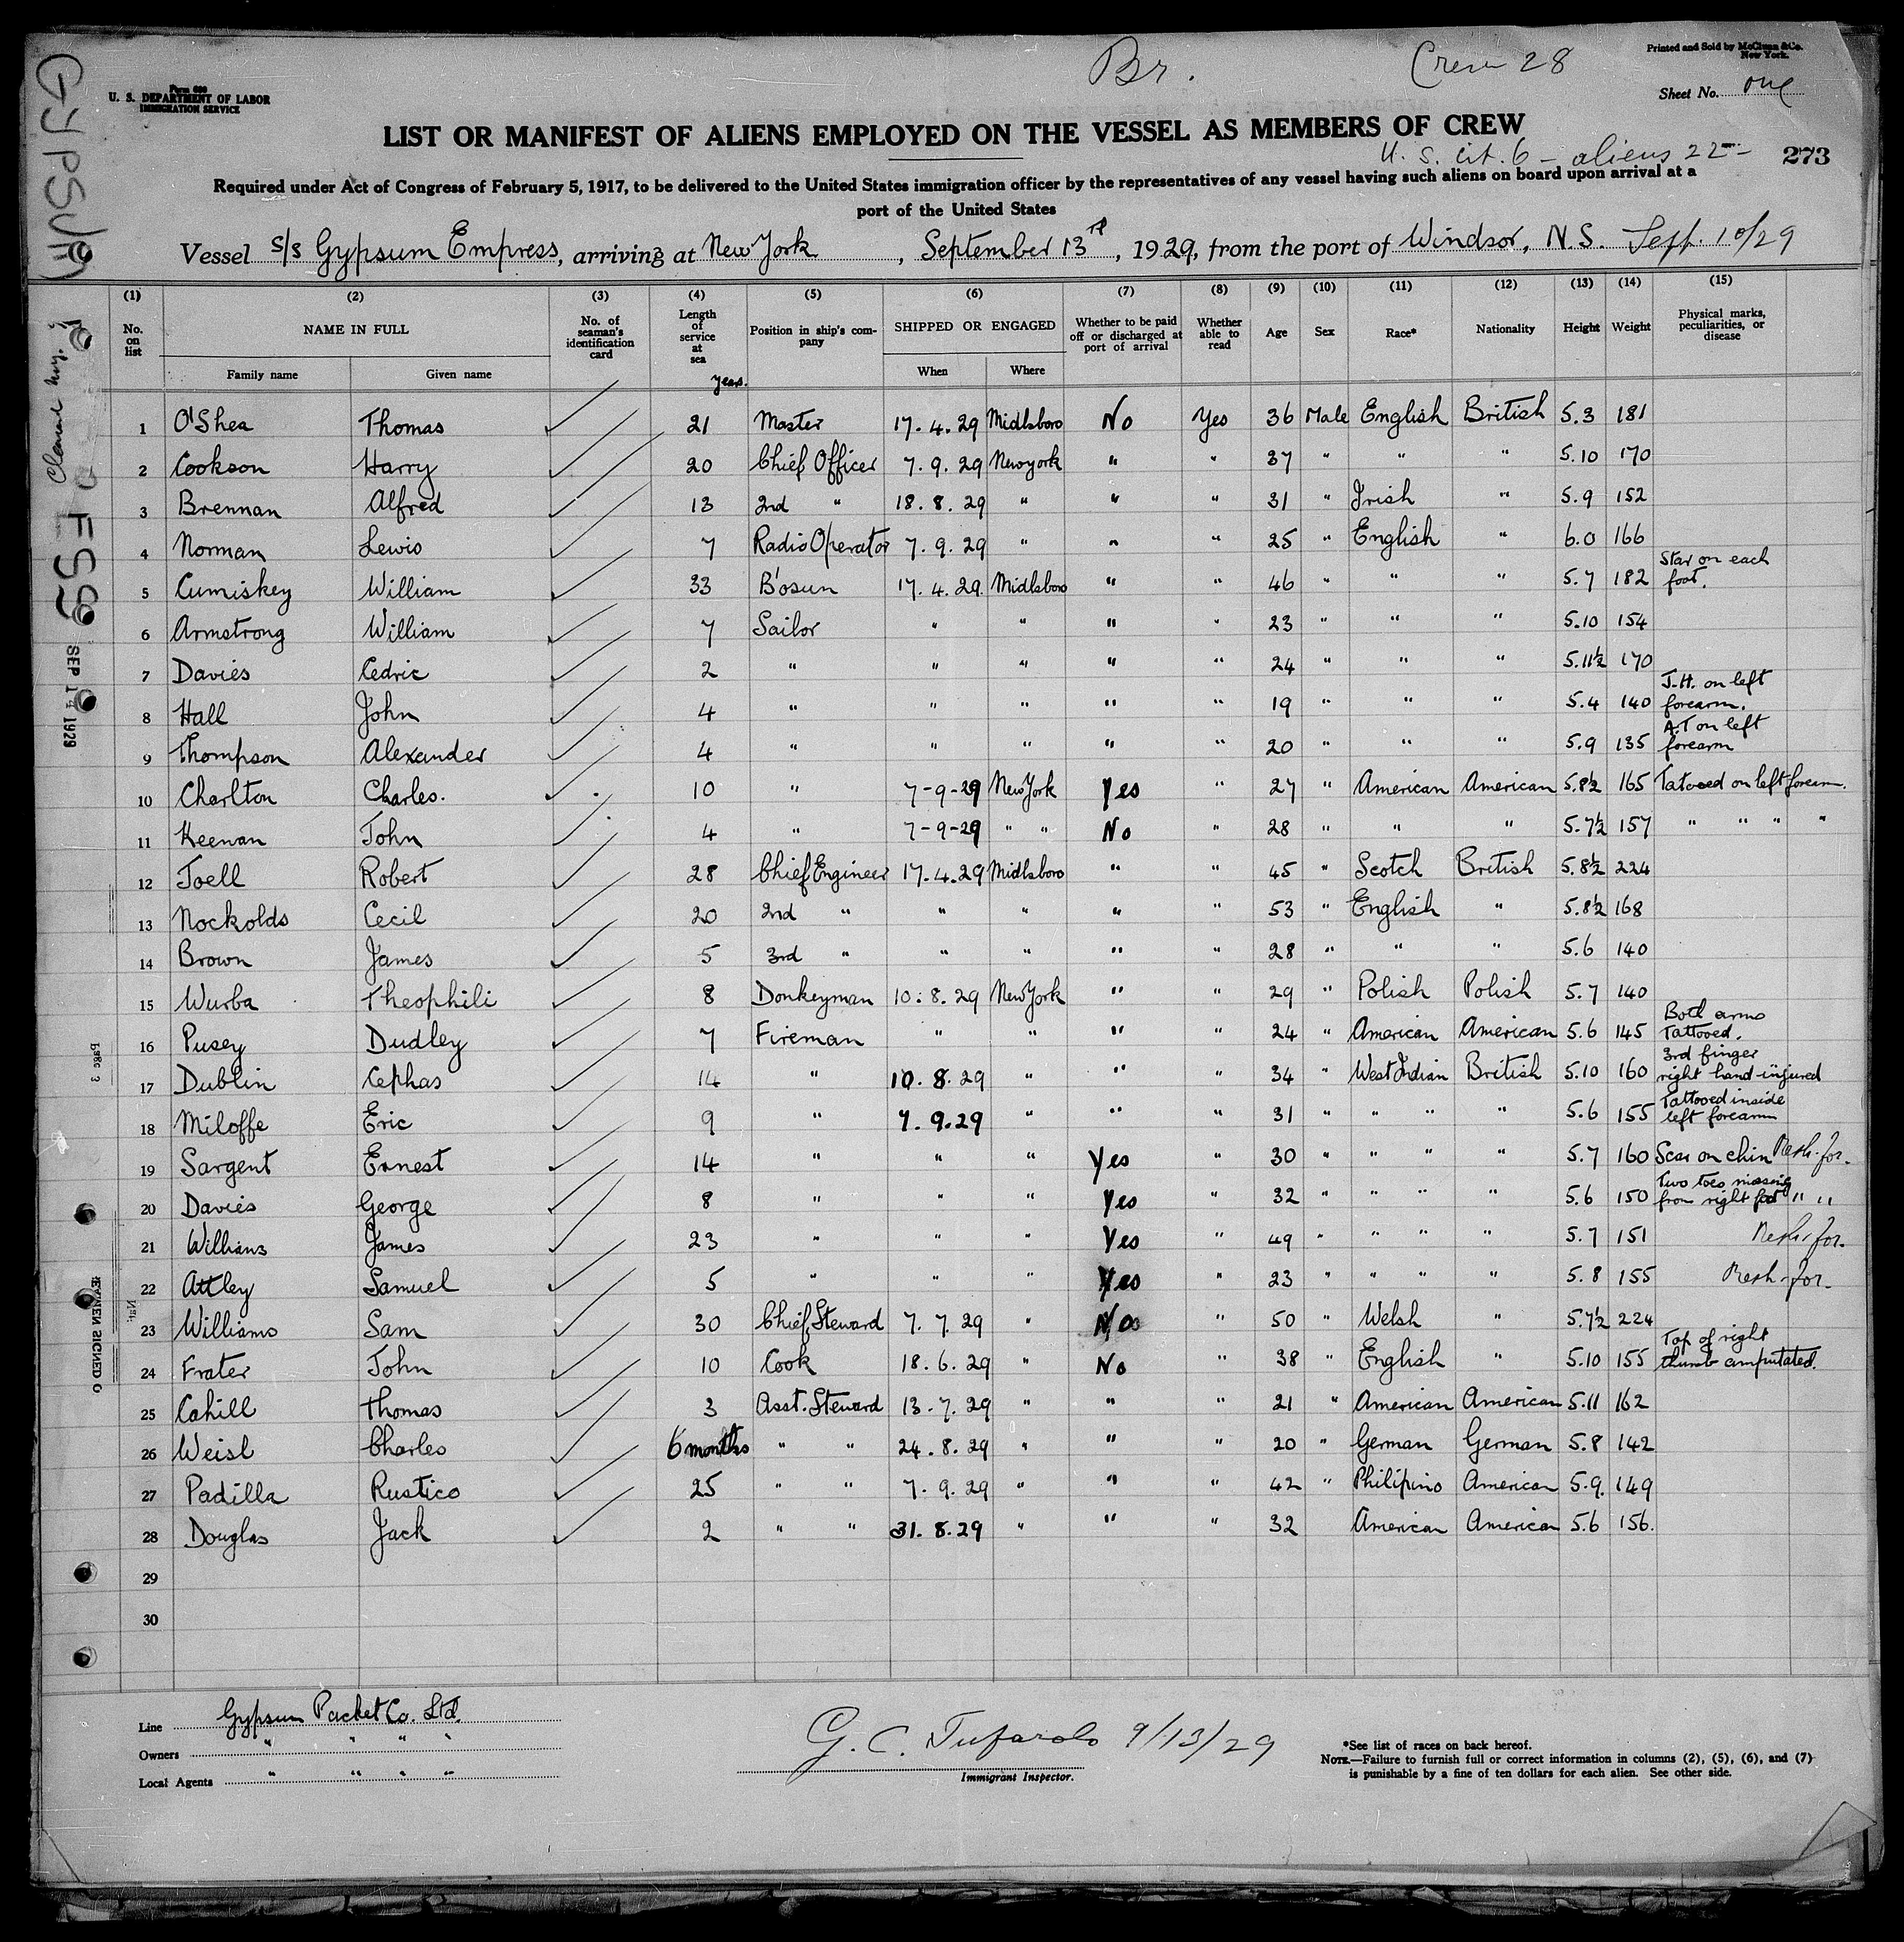 Br.
Crew 28
Printed and Sold by McClunn & Co.
New York.
Form 680
U. S. DEPARTMENT OF LABOR
IMMIGRATION SERVICE
Sheet No. one
LIST OR MANIFEST OF ALIENS EMPLOYED ON THE VESSEL AS MEMBERS OF CREW
U. S. cit. 6 - aliens 22 -
273
Required under Act of Congress of February 5, 1917, to be delivered to the United States immigration officer by the representatives of any vessel having such aliens on board upon arrival at a
port of the United States
Vessel S/S Gypsum Empress, arriving at New York, September 13th, 1929, from the port of Windsor, N.S. Sept. 10/29
(1) (2) (3) (4) (5) (6) (7) (8) (9) (10) (11) (12) (13) (14) (15)
No. on list NAME IN FULL Family name Given name No. of seaman's identification card Length of service at sea years. Position in ship's company SHIPPED OR ENGAGED When Where Whether to be paid off or discharged at port of arrival Whether able to read Age Sex Race* Nationality Height Weight Physical marks, peculiarities, or disease
1 O'Shea Thomas 21 Master 17.4.29 Midlsboro No Yes 36 Male English British 5.3 181
2 Cookson Harry 20 Chief Officer 7.9.29 New york " " 37 " " " 5.10 170
3 Brennan Alfred 13 2nd " 18.8.29 " " " 31 " Irish " 5.9 152
4 Norman Lewis 7 Radio Operator 7.9.29 " " " 25 " English " 6.0 166
5 Cumiskey William 33 B'osun 17.4.29. Midlsboro " " 46 " " " 5.7 182 Star on each foot.
6 Armstrong William 7 Sailor " " " " 23 " " " 5.10 154
7 Davies Cedric 2 " " " " " 24 " " " 5.11½ 170
8 Hall John 4 " " " " " 19 " " " 5.4 140 J.H. on left forearm.
9 Thompson Alexander 4 " " " " " 20 " " " 5.9 135 A.T on left forearm
10 Charlton Charles. 10 " 7-9-29 New York Yes " 27 " American American 5.8½ 165 Tatooed on left forearm.
11 Keenan John 4 " 7-9-29 " " No " 28 " " " 5.7½ 157 " " " "
12 Joell Robert 28 Chief Engineer 17.4.29 Midlsboro " " 45 " Scotch British 5.8½ 224
13 Nockolds Cecil 20 2nd " " " " " 53 " English " 5.8½ 168
14 Brown James 5 3rd " " " " " 28 " " " 5.6 140
15 Wurba Theophili 8 Donkeyman 10.8.29 New York " " 29 " Polish Polish 5.7 140
16 Pusey Dudley 7 Fireman " " " " 24 " American American 5.6 145 Both arms Tattooed.
17 Dublin Cephas 14 " 10.8.29 " " " 34 " West Indian British 5.10 160 3rd finger right hand injured
18 Miloffe Eric 9 " 7.9.29 " " " 31 " " " " 5.6 155 Tattooed inside left forearm
19 Sargent Ernest 14 " " " Yes " 30 " " " " 5.7 160 Scar on chin Resh.for.
20 Davies George 8 " " " Yes " 32 " " " " 5.6 150 Two toes missing from right foot " "
21 Willians James 23 " " " Yes " 49 " " " " 5.7 151 Resh.for.
22 Attley Samuel 5 " " " Yes " 23 " " " " 5.8 155 Resh.for.
23 Williams Sam 30 Chief Steward 7.7.29 " No " 50 " Welsh " 5.7½ 224
24 Frater John 10 Cook 18.6.29 " No " 38 " English " 5.10 155 Top of right thumb amputated.
25 Cahill Thomas 3 Asst. Steward 13.7.29 " " " 21 " American American 5.11 162
26 Weisl Charles 6 months " " 24.8.29 " " " 20 " German German 5.8 142
27 Padilla Rustico 25 " " 7.9.29 " " " 42 " Philipino American 5.9. 149
28 Douglas Jack 2 " " 31.8.29 " " " 32 American American 5.6 156.
29
30
Line Gypsum Packet Co. Ltd.
Owners " " " "
Local Agents " " " "
G. C. Tufarolo 9/13/29
Immigrant Inspector.
*See list of races on back hereof.
NOTE.—Failure to furnish full or correct information in columns (2), (5), (6), and (7)
is punishable by a fine of ten dollars for each alien. See other side.
GYPSUM
SEP 14 1929
Page 3